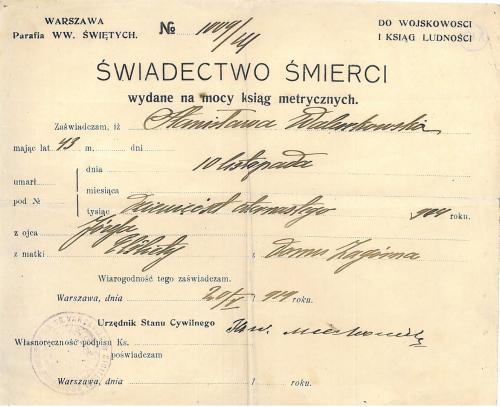 WARSZAWA
Parafia WW. ŚWIĘTYCH.
№ 1009/14
DO WOJSKOWOSCI
I KSIĄG LUDNOŚCI
ŚWIADECTWO ŚMIERCI
wydane na mocy ksiąg metrycznych.
Zaświadczam, iż Stanisława
mając lat 43 m. dni
dnia 10 listopada
umarł
miesiąca
pod №
tysiąc 904 roku.
z ojca Józefa
z matki Elżbiety z domu
Wiarogodność tego zaświadczam.
Warszawa, dnia 20/V 919 roku.
Urzędnik Stanu Cywilnego
Własnoręczność podpisu Ks.
poświadczam
Warszawa, dnia 1 roku.